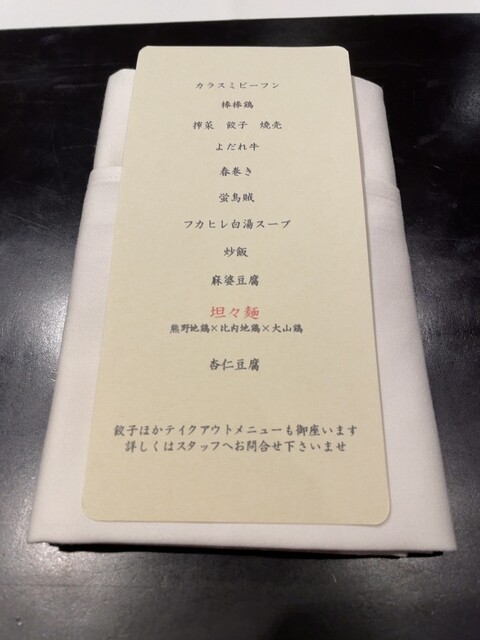 カラスミビーフン
棒棒鶏
搾菜 餃子 焼売
よだれ牛
春巻き
蛍烏賊
フカヒレ白湯スープ
炒飯
麻婆豆腐
坦々麺
熊野地鶏×比内地鶏×大山鶏
杏仁豆腐
餃子ほかテイクアウトメニューも御座います
詳しくはスタッフへお問合せ下さいませ